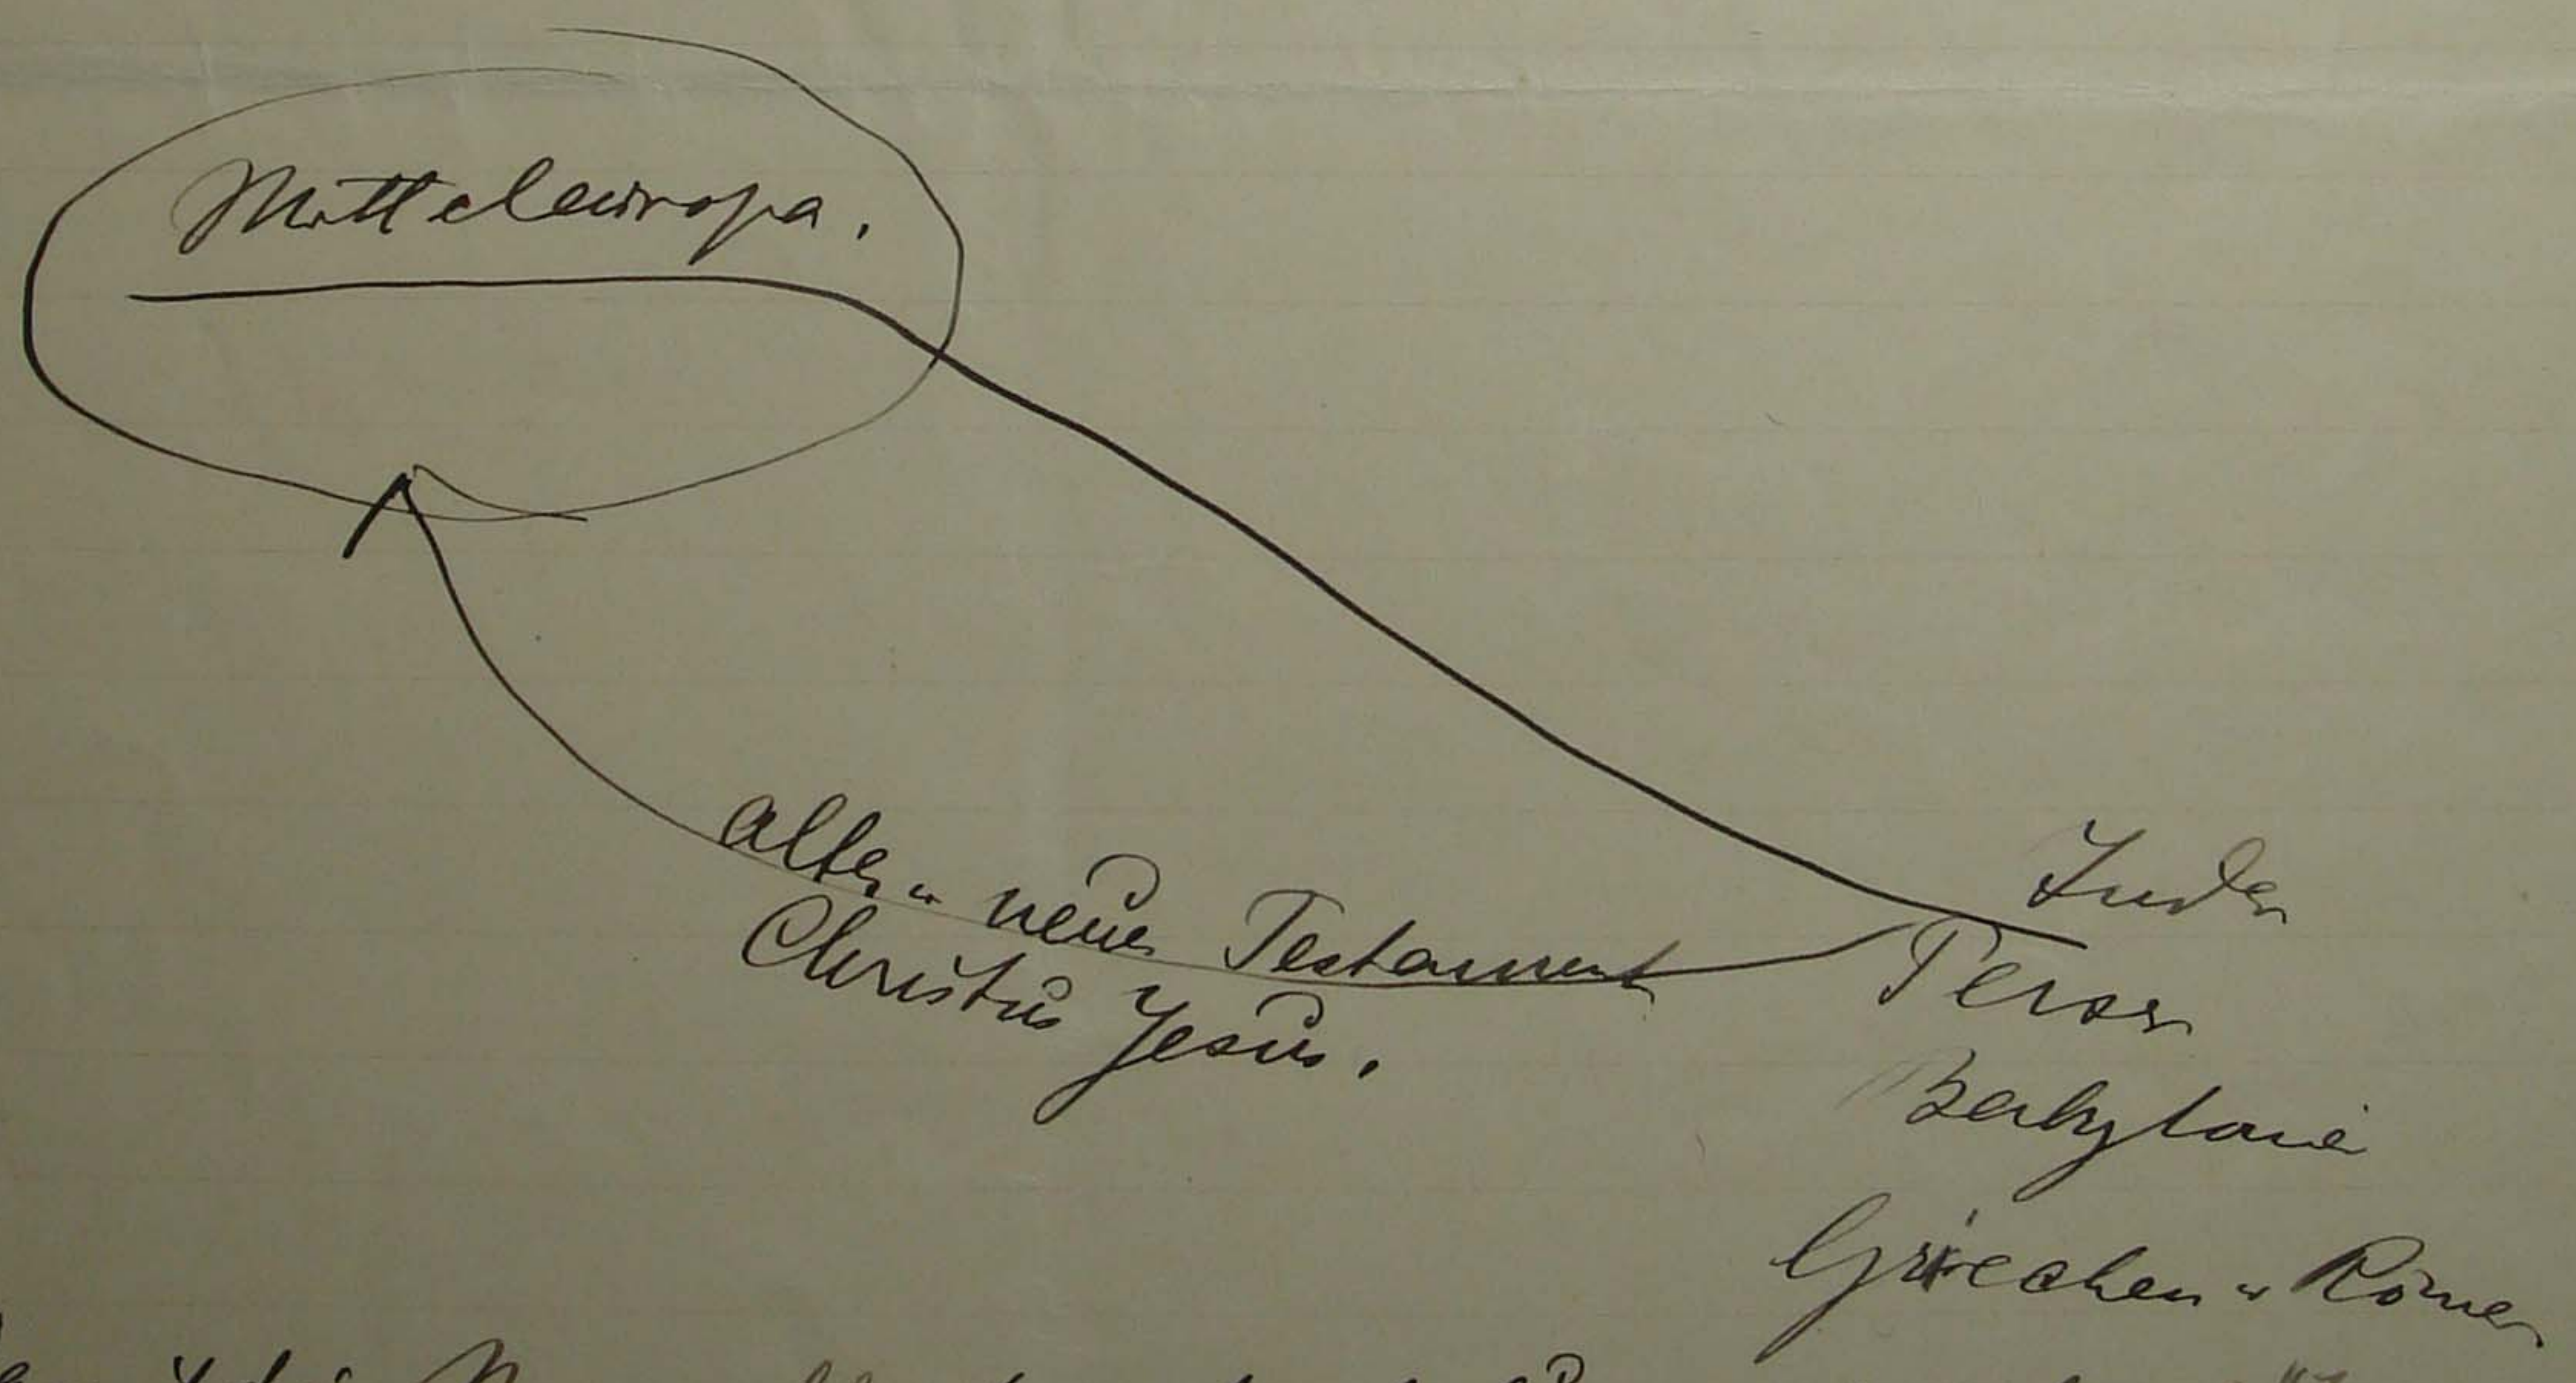 Mitteleuropa.
altes u neues Testament
Christus Jesus.
Inder
Perser
Babylonier
Griechen u Römer